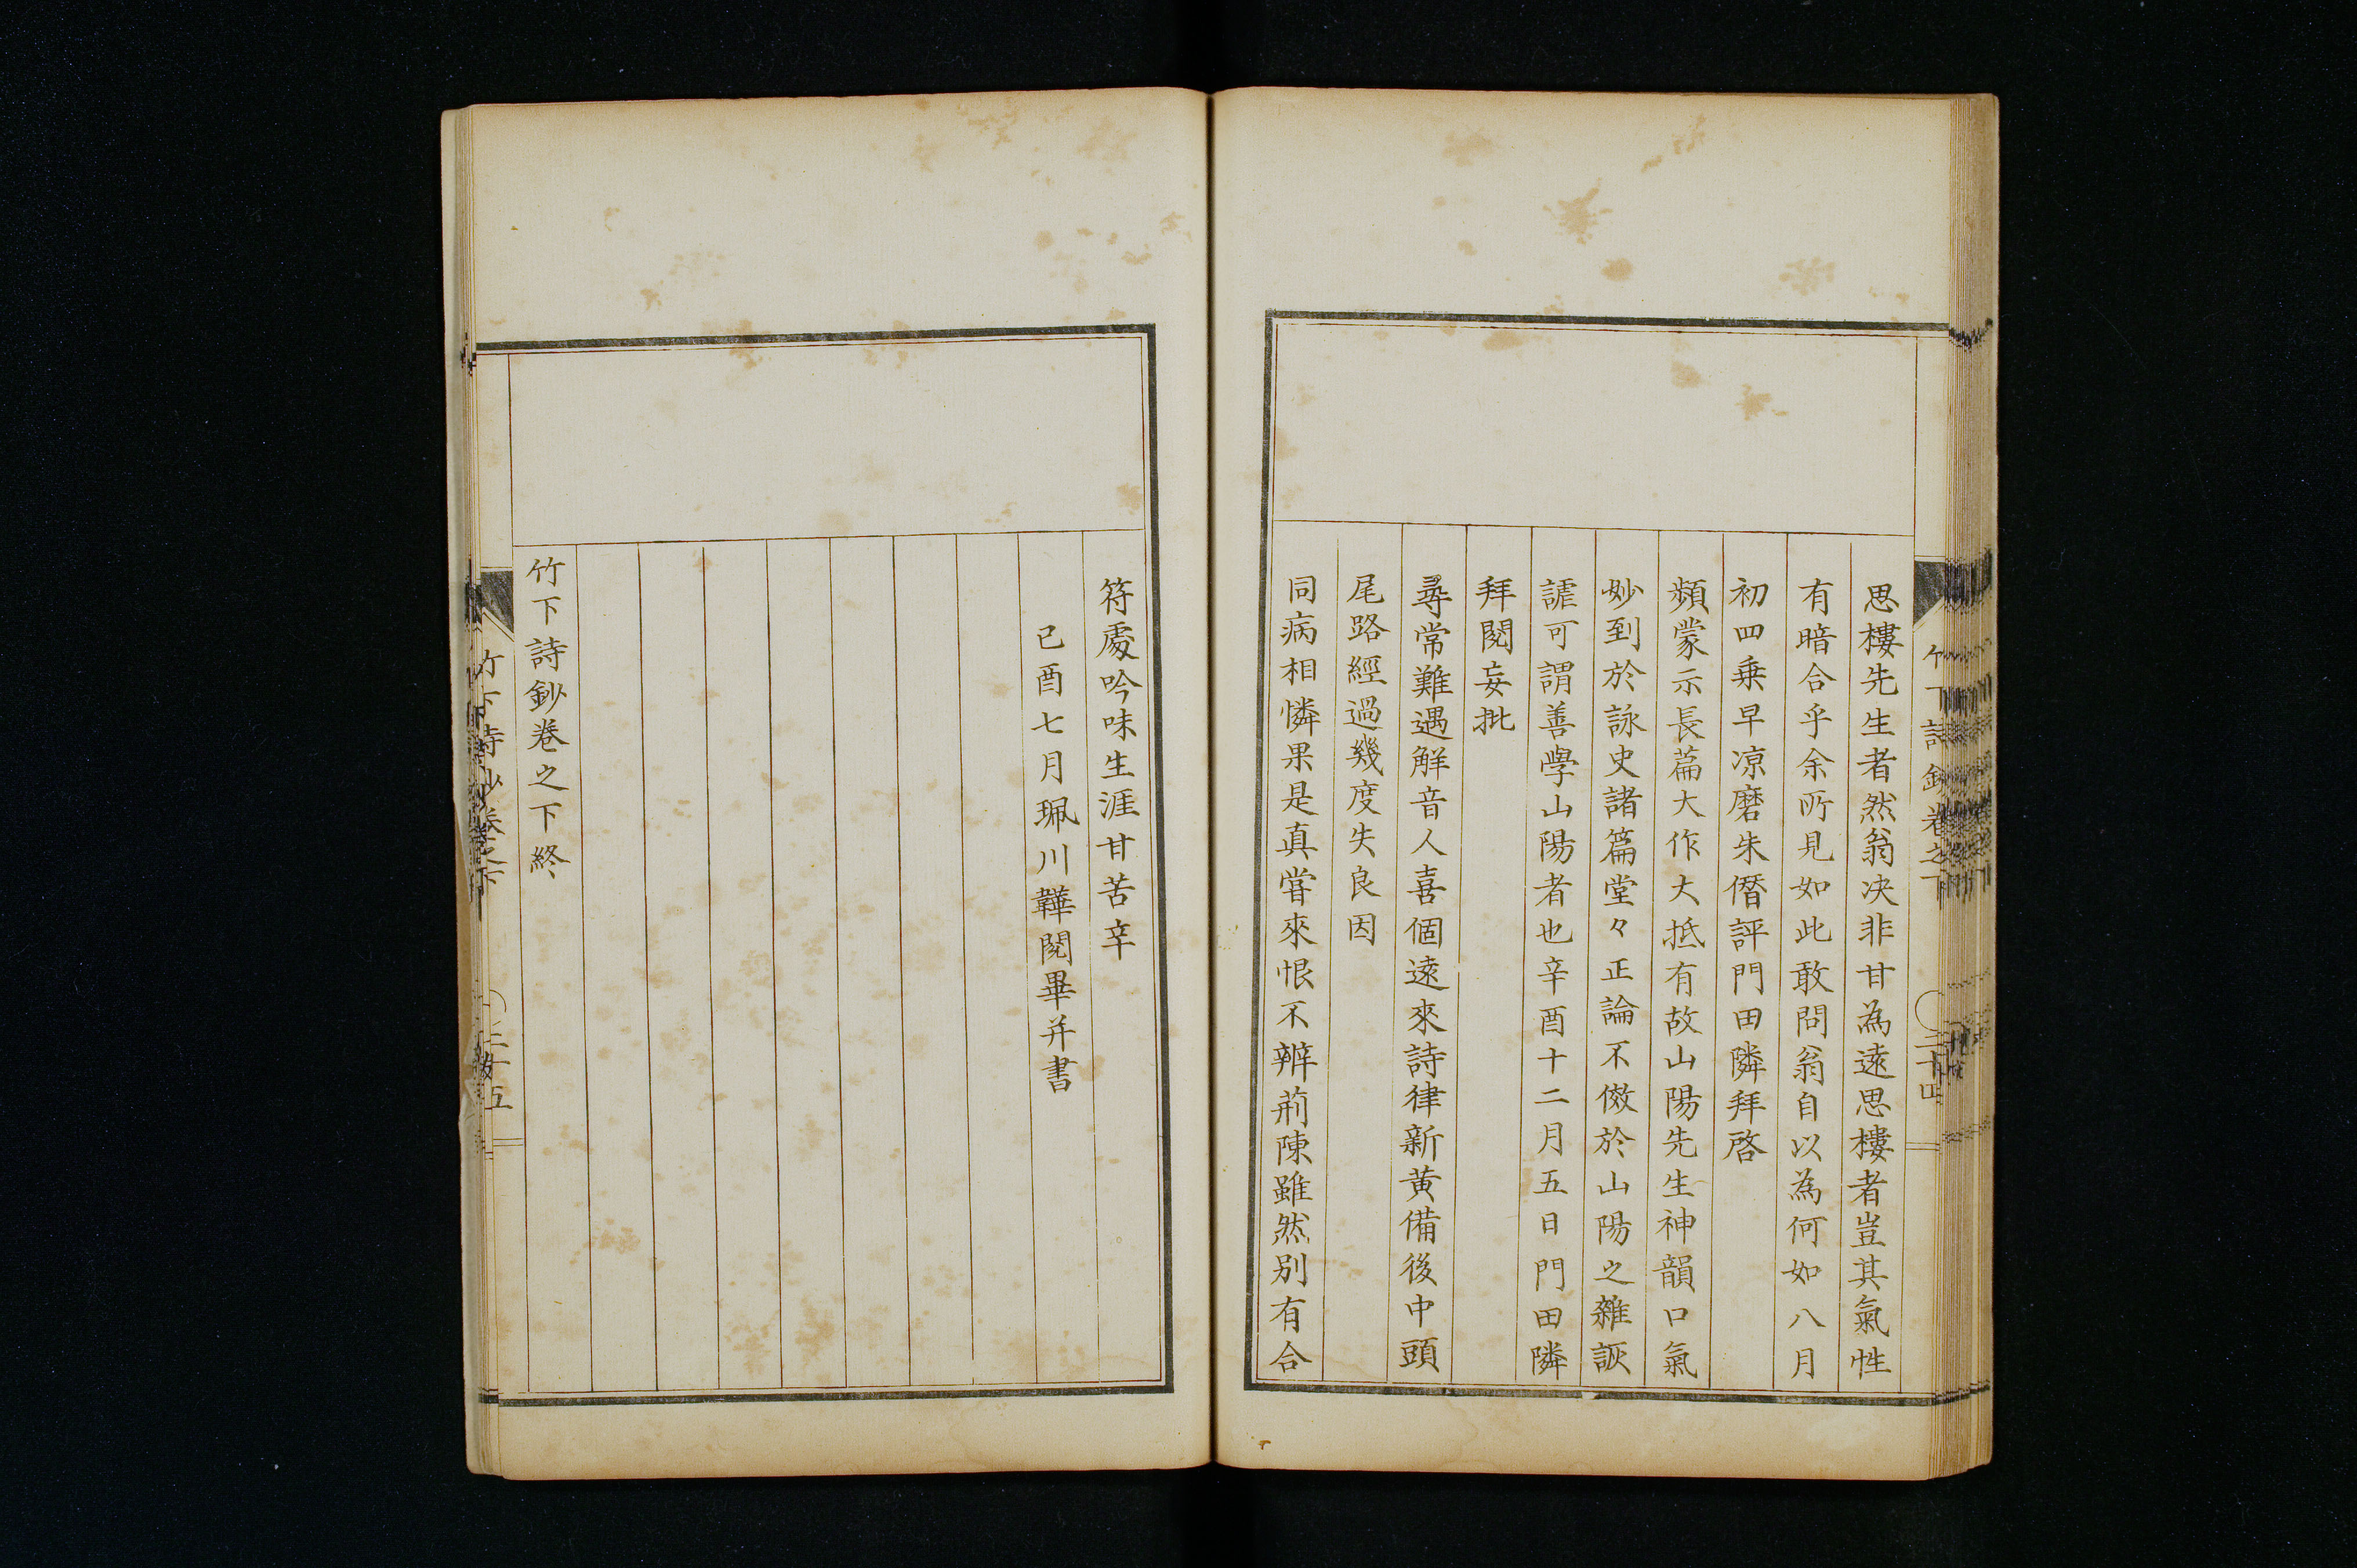 思樓先生者然翁决非甘為遠思樓者豈其氣性
有暗合乎余所見如此敢問翁自以為何如八月
初四乗早凉磨朱僭評門田隣拜啓
頻蒙示長篇大作大抵有故山陽先生神韻口氣
妙到於詠史諸篇堂々正論不倣於山陽之雜詼
謔可謂善學山陽者也辛酉十二月五日門田隣
拜閱妄批
尋常難遇解音人喜個遠來詩律新黄備後中頭
尾路經過幾度失良因
同病相憐果是真嘗來恨不辨荊陳雖然別有合
符處吟味生涯甘苦辛
己酉七月珮川韡閱畢并書
竹下詩鈔卷之下終
竹下詩鈔卷之下
三十四
三十五